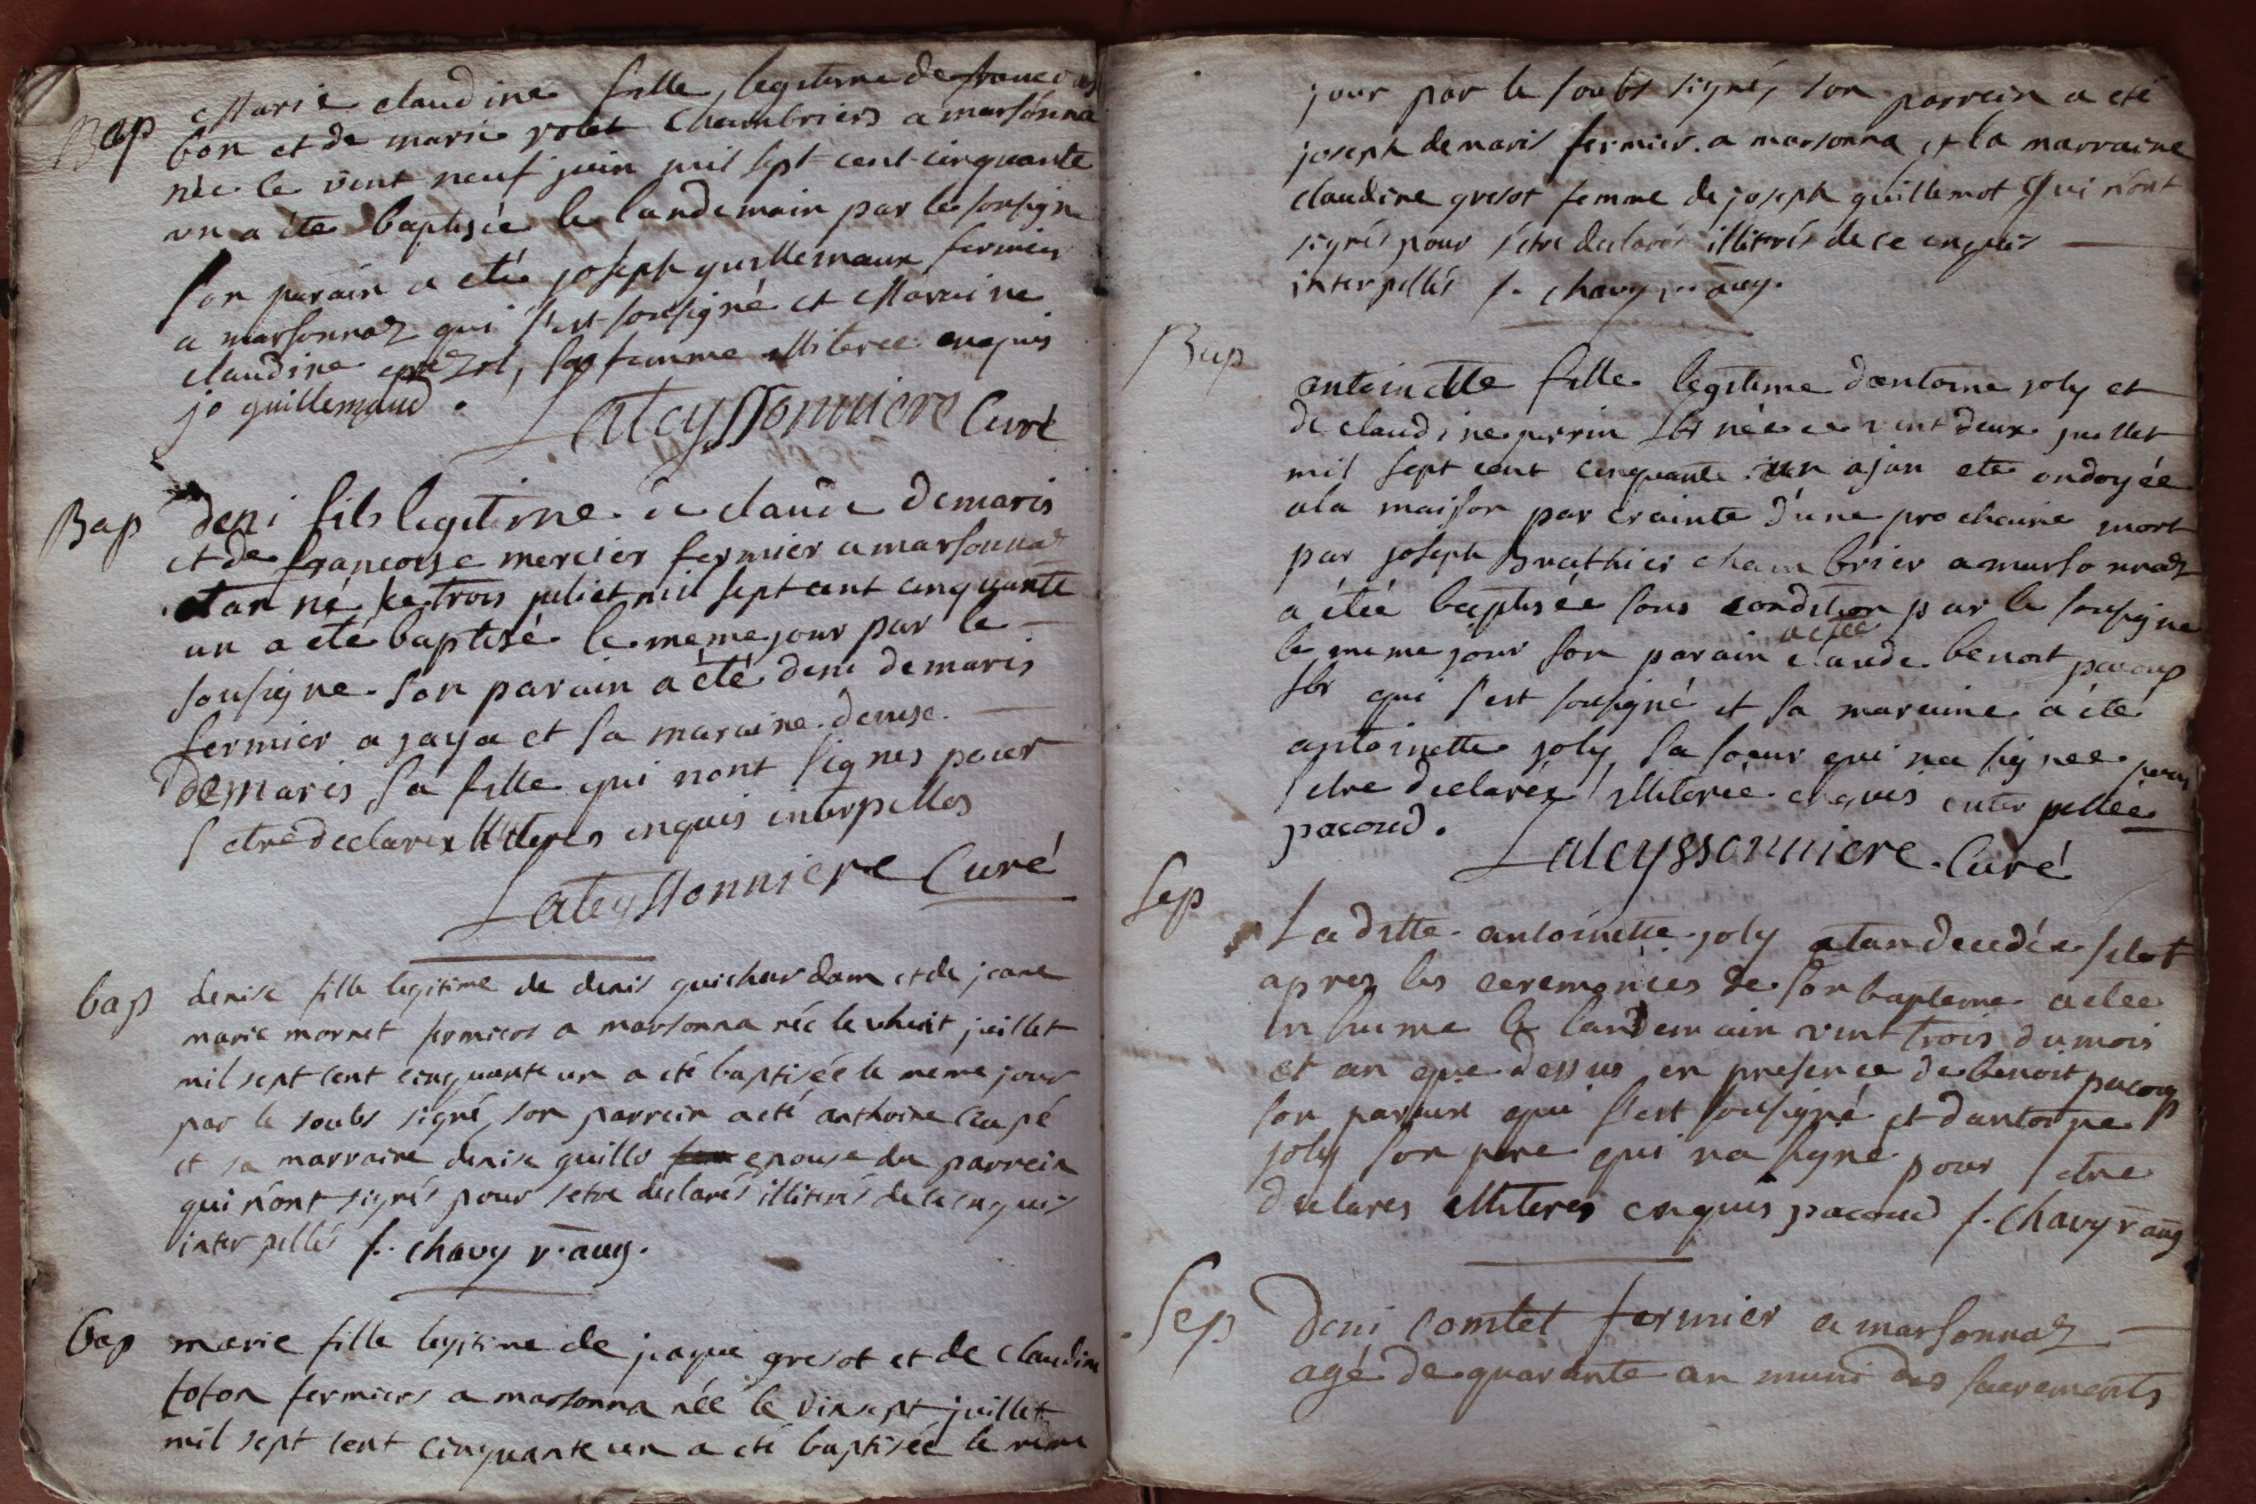 Bap Marie claudine fille legitime de francois
bon et de marie volet chambriers a marsonna
née le vint neuf juin mil sept cent cinquante
un a éte baptisée le landemain par le sousigne
son parain a eté joseph guillemaux fermier
a marsonnaz qui s'est sousigné et Maraine
claudine grezot, sa femme illiteree enquis
jo guillemaud.
Lateyssonniere Curé
Bap deni fils legitime de claude demaris
et de francoise mercier fermier a marsonnaz
etan né le trois juliet mil sept cent cinquante
un a eté baptisé le meme jour par le
sousigne son parain a été deni demaris
fermier a jaya et sa maraine denise
demaris sa fille qui nont signes pour
setre declarer illiteres enquis interpelles
Lateyssonniere Curé
bap denise fille legitime de denis guichardam et de jeane
marie mornet fermiers a marsonna née le huit juillet
mil sept cent cinquante un a été baptisée le meme jour
par le soubs signé, son parrein a eté anthoine Cupé
et sa marraine denise guillo epouse du parrein
qui n'ont signés pour setre declarés illiterés de ce enquis
interpellés f. chavy v. aug.
bap marie fille legitime de jaque gresot et de claudine
fermiers a marsonna née le vinsept juillet
mil sept cent cinquante un a été baptisée le meme
jour par le soubs signé, son parrein a eté
joseph demaris fermier a marsonna et la marraine
claudine gresot femme de joseph guillemot qui n'ont
signés pour s'etre declarés illiterés de ce enquis
interpellés f. chavy v. aug.
Bap
antoinette fille legitime dantoine joly et
de claudine perrin née ce vint deux juillet
mil sept cent cinquante un ajan eté ondoyée
ala maison par crainte d'une prochaine mort
par joseph Bruathier chambrier a marsonnaz
a étée baptisée sous condition par le sousigne
a etée
le meme jour son parain claude benoit pacoup
qui s'est sousigné et sa maraine a été
antoinette joly sa soeur qui na signee pour
setre declarée illiterée enquis interpellée
pacoud.
Lateyssonniere Curé
Sep
La ditte antoinette joly etan decedée sitot
apres les ceremonies de son bapteme a etee
inhume le landemain vint trois du mois
et an que dessus en presence de benoit pacoup
son parain qui s'est sousigné et dantoine
joly son pere qui na signé pour setre
declares illiteres enquis pacoud f. chavy v aug
Sep Deni comtet fermier a marsonnaz
agé de quarante an muni des sacrements